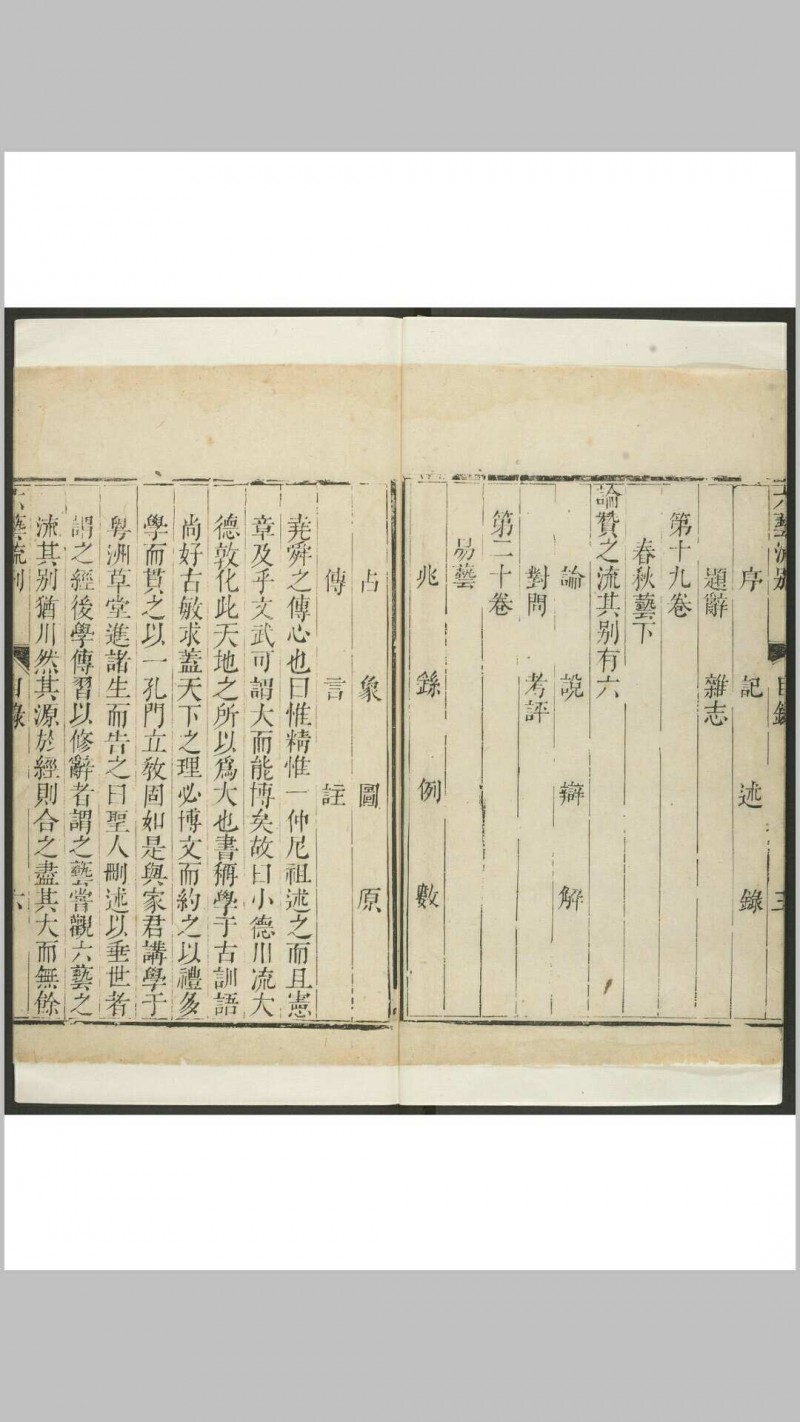 六藝流別 目錄 五
序 記 述 錄
題辭 雜志
第十九卷
春秋藝下
論贊之流其別有六
論 說 辯 解
對問 考評
第二十卷
易藝
兆 繇 例 數
占 象 圖 原
傳 言 註
堯舜之傳心也曰惟精惟一仲尼祖述之而且憲
章及乎文武可謂大而能博矣故曰小德川流大
德敦化此天地之所以爲大也書稱學于古訓語
尚好古敏求蓋天下之理必博文而約之以禮多
學而貫之以一孔門立敎固如是與家君講學于
粵洲草堂進諸生而告之曰聖人刪述以垂世者
謂之經後學傳習以修辭者謂之藝嘗觀六藝之
流其別猶川然其源於經則合之盡其大而無餘
六藝流別 目錄 六